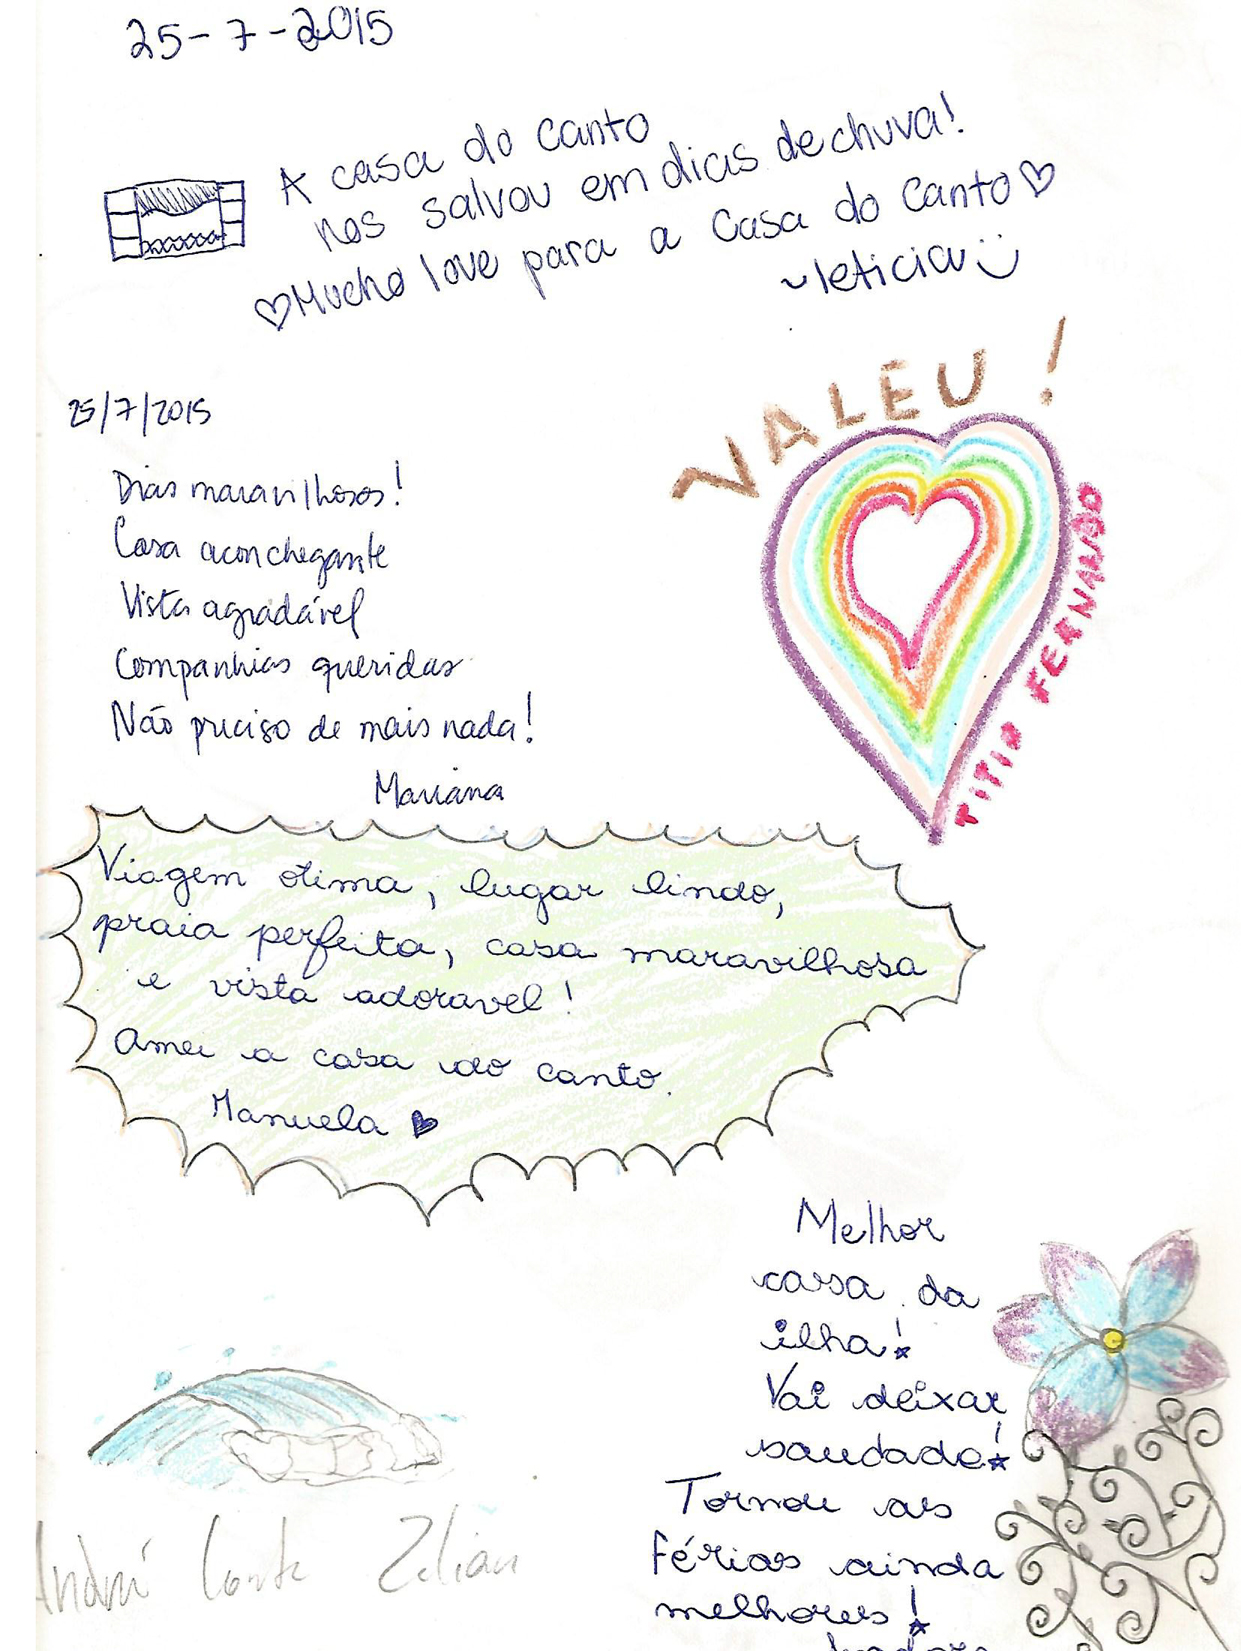 25-7-2015
A casa do canto
nos salvou em dias de chuva!
♡Mucho love para a Casa do Canto♡
~leticia
VALEU!
TITIO FERNANDO
25/7/2015
Dias maravilhosos!
Casa aconchegante
Vista agradável
Companhias queridas
Não preciso de mais nada!
Mariana
Viagem otima, lugar lindo,
praia perfeita, casa maravilhosa
e vista adoravel!
Amei a casa do canto.
Manuela ♥
Melhor
casa da
ilha!
Vai deixar
saudade!
Tornou as
férias ainda
melhores!
André